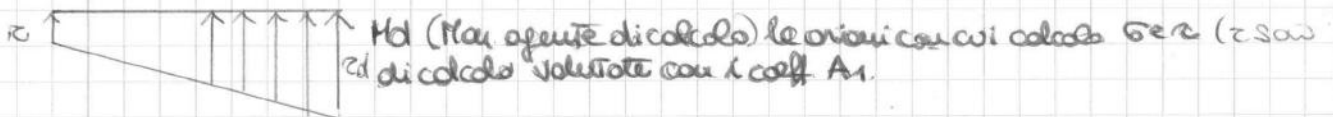 τ Md (Max agente di calcolo) le azioni con cui calcolo σ e τ (τ sono
τd di calcolo valutate con i coeff A1.